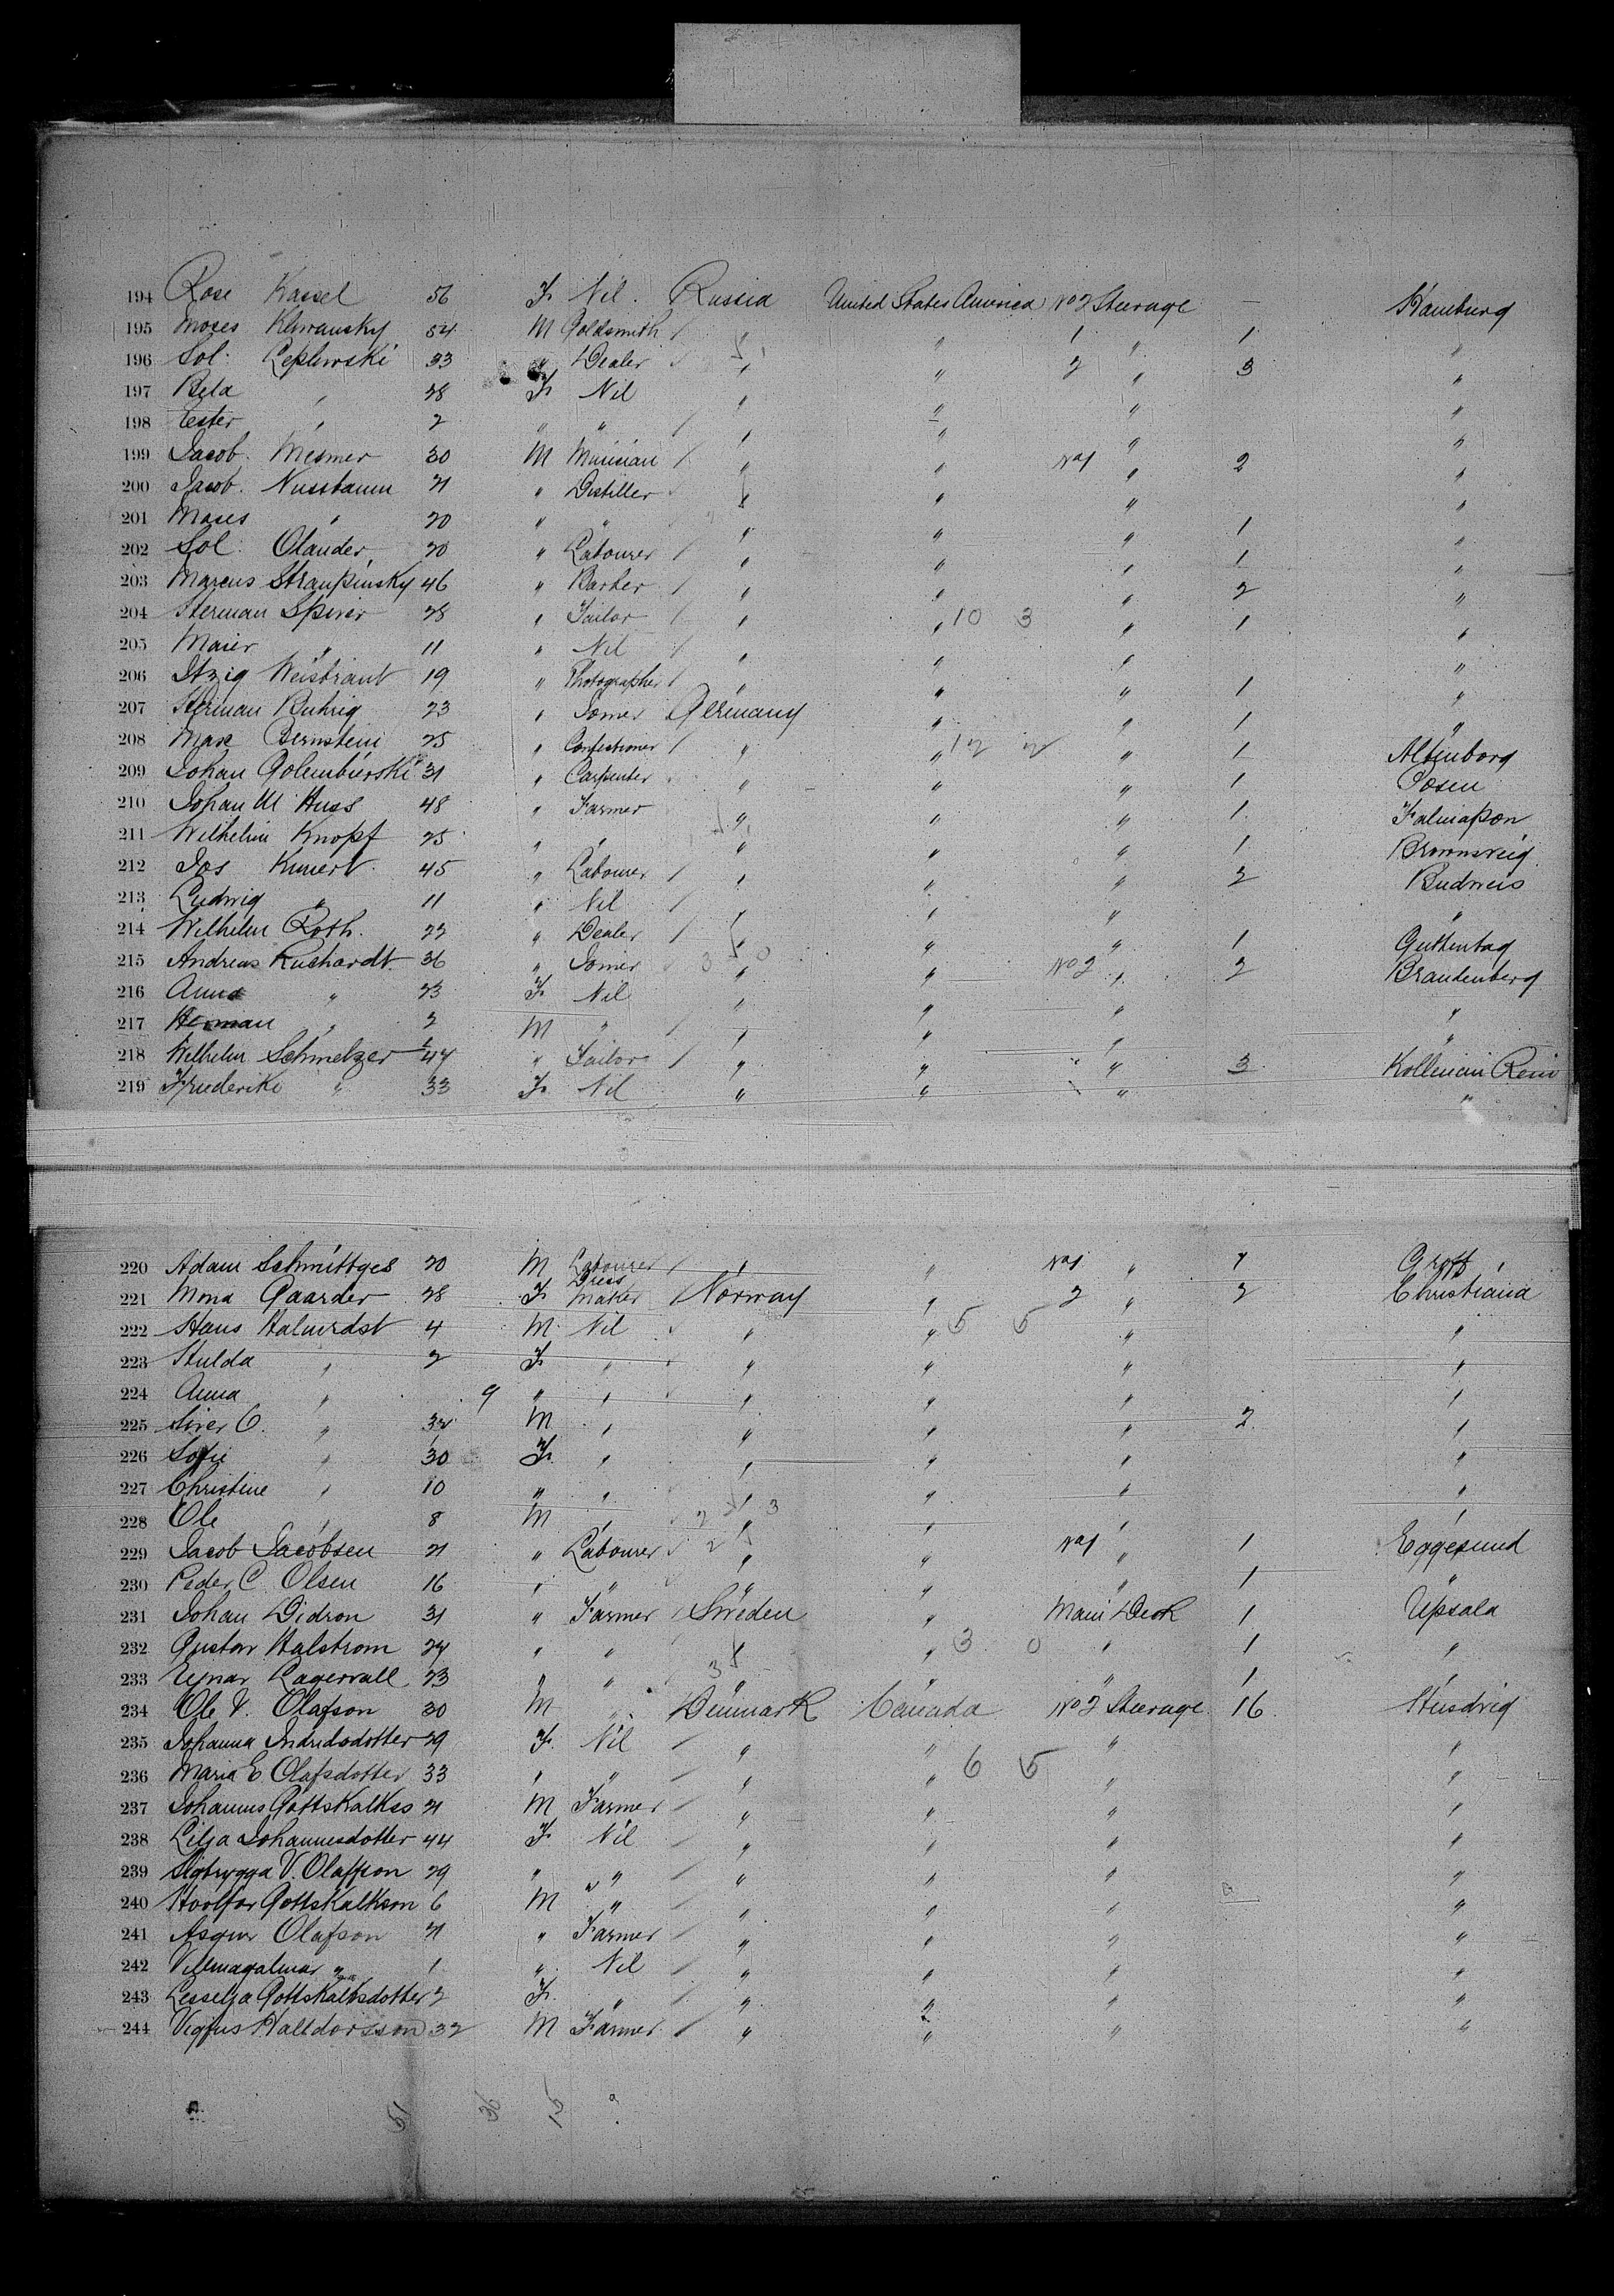 194 Rose Kassel 56 F Nil. Russia United States America No 2 Steerage — Hamburg
195 Moses Klwansky 54 M Goldsmith / " " 1 " 1 "
196 Sol. Leplowski 33 " Dealer " " 2 " 3 "
197 Bela " 28 F Nil " " " "
198 Ester " 2 " " / " " " "
199 Jacob Mesmer 30 M Musician / " " No 1 " 2 "
200 Jacob. Nussbaum 21 " Distiller " " " "
201 Moses " 20 " " " " " 1 "
202 Sol. Olander 20 " Labourer / " " " 1 "
203 Marcus Straupinsky 46 " Barber / " " " 2 "
204 Herman Spirer 28 " Tailor / " " 10 3 " 1 "
205 Maier " 11 " Nil / " " " "
206 Itzig Weisbraut 19 " Photographer / " " " 1 "
207 Herman Buhrig 23 " Joiner Germany " " 1 "
208 Max Bernstein 25 " Confectioner / " " 12 2 " 1 Altenborg
209 Johan Golembierski 31 " Carpenter " " " 1 Posen
210 Johan M Huss 48 " Farmer " " " 1
211 Wilhelm Knopf 25 " " " " " 1
212 Jos Kunert 45 " Labourer / " " " 2 Budweis
213 Ludwig " 11 " Nil / " " " "
214 Wilhelm Roth. 22 " Dealer / " " " 1 Guttentag
215 Andreas Ruchardt 36 " Joiner 3 0 " " No 2 " 2 Brandenberg
216 Anna " 23 F Nil " " " "
217 Herman " 2 M " / " " " "
218 Wilhelm Schmelzer 47 " Tailor / " " " 3
219 Friederike " 33 F Nil " " " "
220 Adam Schmittges 20 M Labourer / " " No 1 " 1
221 Mona Gaarder 28 F Dress Maker Norway " 2 " 2 Christiania
222 Hans Halverdst 4 M Nil " " 5 5 " "
223 Hulda " 2 F " " " " "
224 Anna " 9 " " " " " "
225 Siver O. " 32 M " " " " 2 "
226 Sofie " 30 F " " " " "
227 Christine " 10 " " " " " "
228 Ole " 8 M " 2 3 " " " "
229 Jacob Jacobsen 21 " Labourer 2 " " No 1 " 1 Eggesund
230 Peder C. Olsen 16 " " " " " 1 "
231 Johan Didron 31 " Farmer Sweden " Main Deck 1 Upsala
232 Gustav Halstrom 24 " " / " " 3 0 " 1 "
233 Ejnar Lagervall 23 " " 3 " " " 1 "
234 Ole V. Olafson 30 M " Denmark Canada No 2 Steerage 16 Husdvig
235 Johanna Indridsdotter 29 F. Nil / " " " "
236 Maria E Olafsdotter 33 " " / " " 6 5 " "
237 Johannus Gottskalkss 21 M Farmer / " " " "
238 Lilja Johannesdotter 44 F Nil / " " " "
239 Sigtrygga V. Olafson 29 " " / " " " "
240 Hoolfar Gottskalkson 6 M " / " " " "
241 Asgeir Olafson 21 " Farmer / " " " "
242 1 " Nil / " " " "
243 Lesselja Gottskalksdotter 2 F " / " " " "
244 Vigfus Halldorsson 32 M Farmer / " " " "
51 36 15